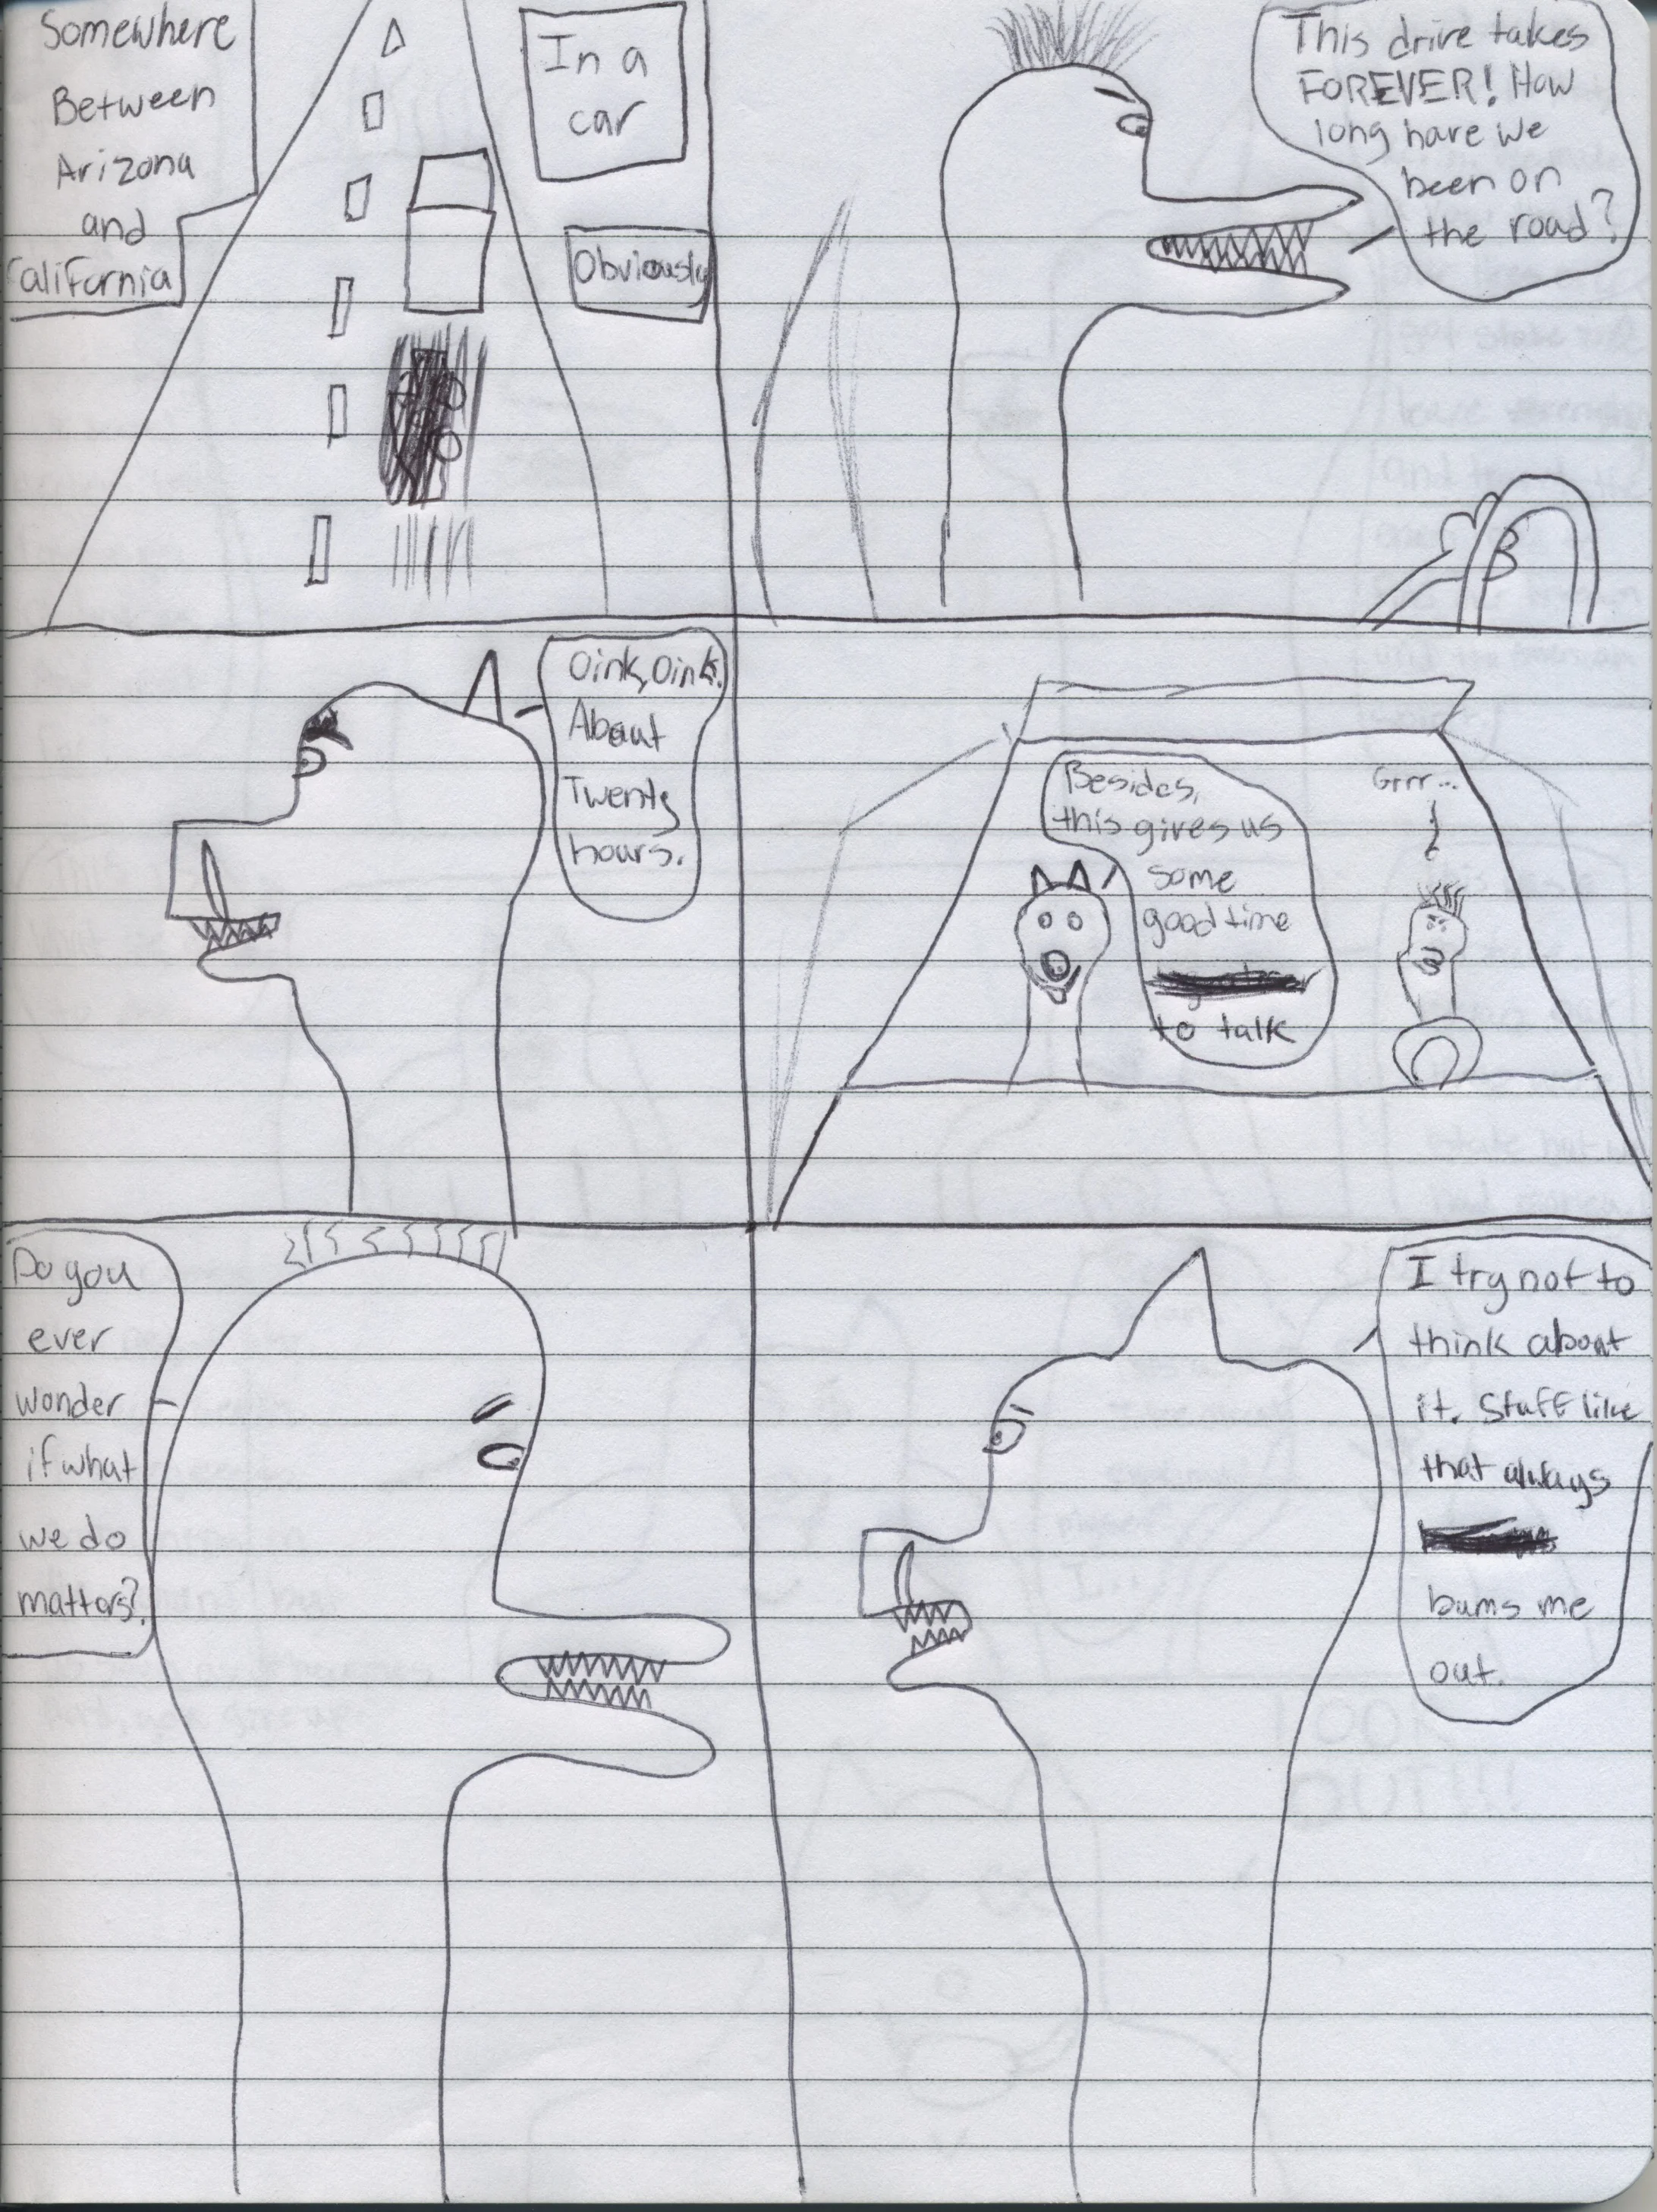 Somewhere
Between
Arizona
and
California
In a
car
Obviously
This drive takes
FOREVER! How
long have we
been on
the road?
Oink, Oink.
About
Twenty
hours.
Besides,
this gives us
some
good time
to talk
Grrr...
Do you
ever
wonder
if what
we do
mattors?
I try not to
think about
it. Stuff like
that always
bums me
out.